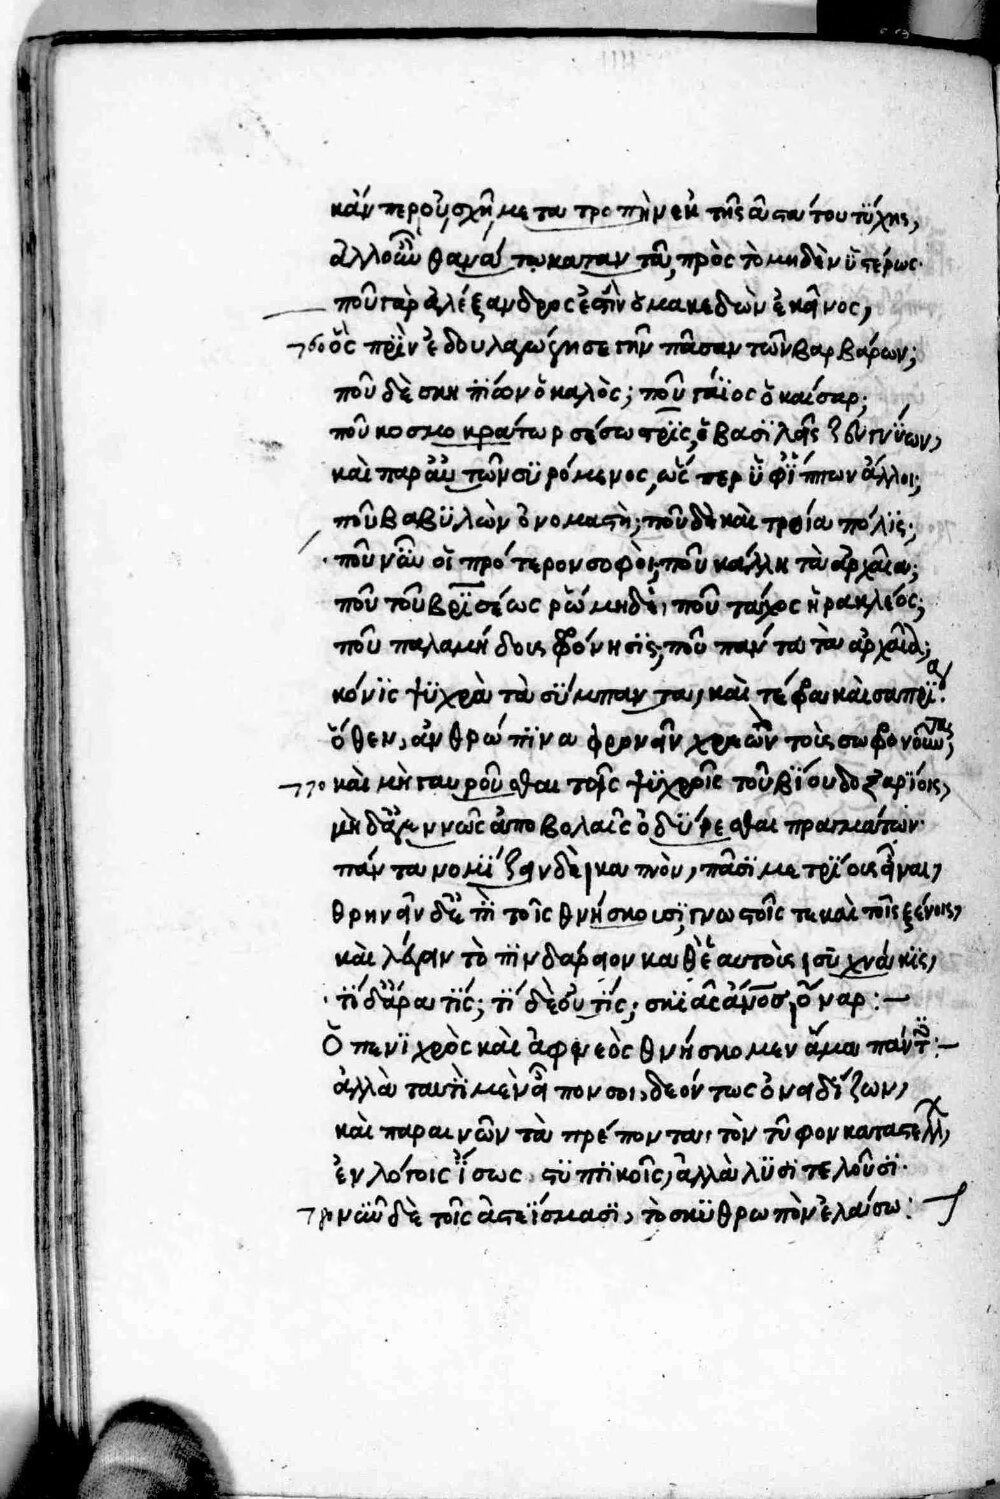 κἄν περ οὐ σχῆ μετατροπὴν ἐκ τῆς ἀστάτου τύχης,
ἀλλ' οὖν θανάτω καταντᾶ, πρὸς τὸ μηδὲν ὑστέρως.
ποῦ γὰρ ἀλέξανδρος ἐστὶν ὁ μακεδὼν ἐκεῖνος,
760 ὃς πρὶν ἐδουλαγώγησε γῆν πᾶσαν τῶν βαρβάρων;
ποῦ δὲ σκηπίων ὁ καλὸς; ποῦ γάϊος ὁ καίσαρ;
ποῦ κοσμοκράτωρ σέσωστρις, ὁ βασιλεῖς ζευγνύων,
καὶ παρ' αὐτῶν συρόμενος, ὥσπερ ὑφ' ἵππων ἄλλοι;
ποῦ βαβυλὼν ὀνομαστὴ; ποῦ δὲ καὶ τροία πόλις;
ποῦ νῦν οἱ πρότερον σοφοὶ; ποῦ κάλλη τὰ ἀρχαῖα;
ποῦ τοῦ βρισέως ῥώμη δὲ, ποῦ τεῖχος ἡρακλέος;
ποῦ παλαμήδους φρόνησις; ποῦ πάντα τὰ ἀρχαῖα;
κόνις ψυχρὰ τὰ σύμπαντα, καὶ τέφρα καὶ σαπρία.
ὅθεν, ἀνθρώπινα φρονεῖν χρεὼν τοῖς σωφρονοῦσι;
770 καὶ μὴ γαυροῦσθαι τοῖς ψυχροῖς τοῦ βίου δοξαρίοις,
μὴ δ' ἀγεννῶς ἀποβολαῖς ὀδύρεσθαι πραγμάτων.
πάντα νομίζειν δὲ καπνὸν, πᾶσι μετρίοις εἶναι,
θρηνεῖν δ' ἐπὶ τοῖς θνήσκουσι, γνωστοῖς τε καὶ τοῖς ξένοις,
καὶ λέγειν τὸ πινδάρειον καθ' ἑαυτοὺς συχνάκις,
τί δ' ἄρα τίς; τί δὲ οὔ τις; σκιᾶς ἄνος ὄναρ:—
Ὁ πενιχρὸς καὶ ἀφνεὸς θνήσκομεν ἅμα πάντες:—
ἀλλὰ ταυτὶ μὲν εἶπον σοι, δεόντως ὀνειδίζων,
καὶ παραινῶν τὰ πρέποντα, τὸν τῦφον καταστέλλειν,
ἐν λόγοις ἴσως στυπτικοῖς, ἀλλὰ λυσιτελοῦσι.
780 νῦν δὲ τοῖς ἀστεΐσμασι, τὸ σκυθρωπὸν ἐλάσω: